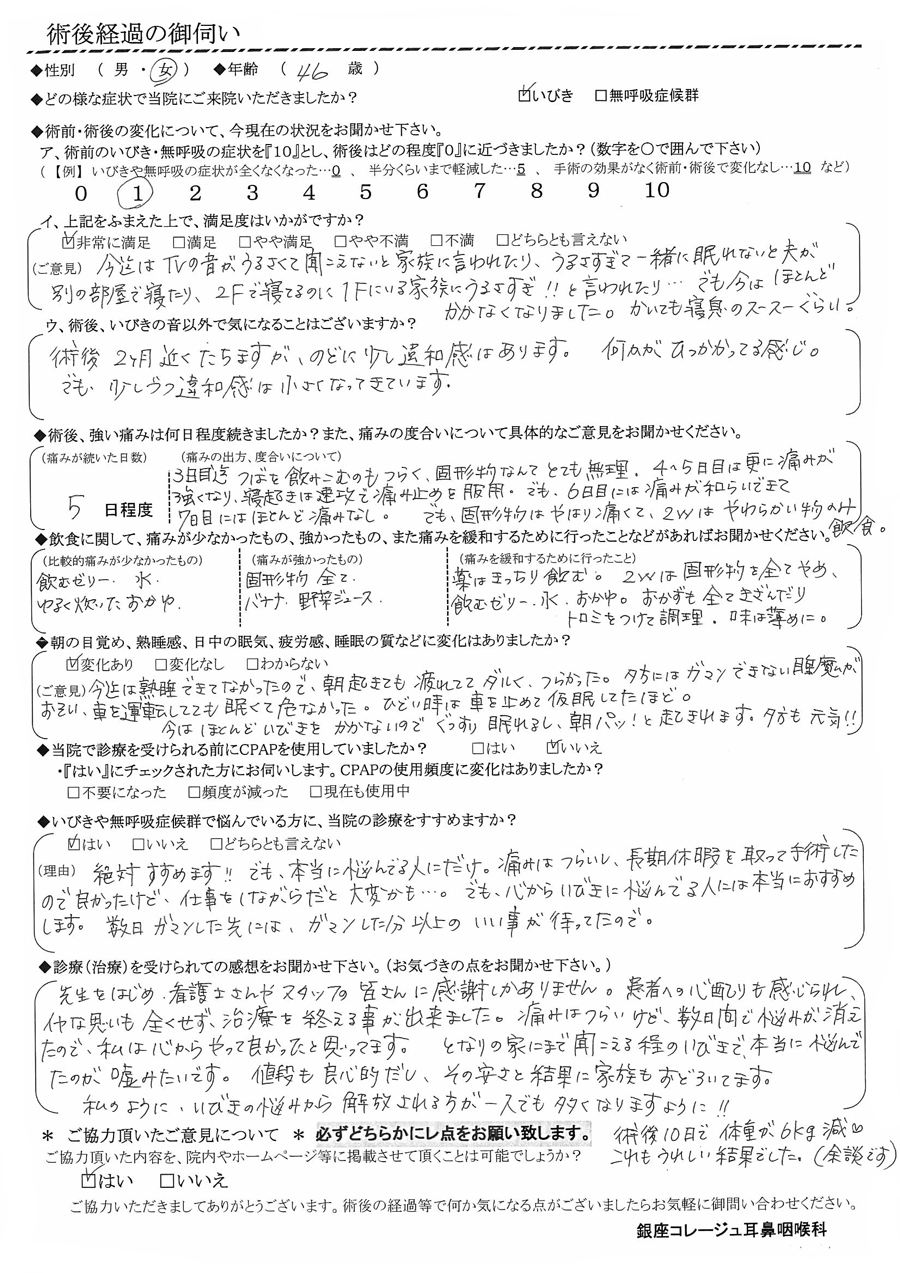 術後経過の御伺い
◆性別 ( 男 ・ 女 ) ◆年齢 ( 46 歳 )
◆どの様な症状で当院にご来院いただきましたか? ☑いびき □無呼吸症候群
◆術前・術後の変化について、今現在の状況をお聞かせ下さい。
ア、術前のいびき・無呼吸の症状を『10』とし、術後はどの程度『0』に近づきましたか?(数字を〇で囲んで下さい)
(【例】 いびきや無呼吸の症状が全くなくなった…0 、 半分くらいまで軽減した…5 、 手術の効果がなく術前・術後で変化なし…10 など)
0 1 2 3 4 5 6 7 8 9 10
イ、上記をふまえた上で、満足度はいかがですか?
☑非常に満足 □満足 □やや満足 □やや不満 □不満 □どちらとも言えない
(ご意見) 今迄は TVの音がうるさくて聞こえないと家族に言われたり、うるさすぎて一緒に眠れないと夫が
別の部屋で寝たり、2Fで寝てるのに1Fにいる家族にうるさすぎ!!と言われたり… でも今は ほとんど
かかなくなりました。 かいても寝息のスースーぐらい。
ウ、術後、いびきの音以外で気になることはございますか?
術後 2ヶ月近くたちますが、のどに少し違和感はあります。 何かがひっかかってる感じ。
でも、少しづつ違和感は小さくなってきています。
◆術後、強い痛みは何日程度続きましたか?また、痛みの度合いについて具体的なご意見をお聞かせください。
(痛みが続いた日数) (痛みの出方、度合いについて)
5 日程度
3日目迄 つばを飲みこむのもつらく、固形物なんてとても無理。4〜5日目は更に痛みが
強くなり、寝起きは速攻で痛み止めを服用。でも、6日目には痛みが和らいできて
7日目にはほとんど痛みなし。 でも、固形物はやはり痛くて、2wはやわらかい物のみ
飲食。
◆飲食に関して、痛みが少なかったもの、強かったもの、また痛みを緩和するために行ったことなどがあればお聞かせください。
(比較的痛みが少なかったもの) (痛みが強かったもの) (痛みを緩和するために行ったこと)
飲むゼリー. 水.
ゆるく炊いたおかゆ.
固形物 全て.
バナナ. 野菜ジュース.
薬はきっちり飲む。 2wは固形物を全てやめ、
飲むゼリー.水.おかゆ。おかずも全てきざんだり
トロミをつけて調理. 味は薄めに。
◆朝の目覚め、熟睡感、日中の眠気、疲労感、睡眠の質などに変化はありましたか?
☑変化あり □変化なし □わからない
(ご意見) 今迄は熟睡できてなかったので、朝起きても疲れててダルく、つらかった。夕方にはガマンできない睡魔が
おそい、車を運転してても眠くて危なかった。ひどい時は車を止めて仮眠してたほど。
今はほとんどいびきをかかないのでぐっすり眠れるし、朝パッ!と起きれます。夕方も元気!!
◆当院で診療を受けられる前にCPAPを使用していましたか? □はい ☑いいえ
・『はい』にチェックされた方にお伺いします。CPAPの使用頻度に変化はありましたか?
□不要になった □頻度が減った □現在も使用中
◆いびきや無呼吸症候群で悩んでいる方に、当院の診療をすすめますか?
☑はい □いいえ □どちらとも言えない
(理由) 絶対すすめます!! でも、本当に悩んでる人にだけ。痛みはつらいし、長期休暇を取って手術した
ので良かったけど、仕事をしながらだと大変かも…。でも、心からいびきに悩んでる人には本当におすすめ
します。 数日ガマンした先には、ガマンした分以上のいい事が待ってたので。
◆診療(治療)を受けられての感想をお聞かせ下さい。(お気づきの点をお聞かせ下さい。)
先生をはじめ.看護士さんやスタッフの皆さんに感謝しかありません。患者への心配りも感じられ、
イヤな思いも全くせず、治療を終える事が出来ました。痛みはつらいけど、数日間で悩みが消え
たので、私は心からやって良かったと思ってます。 となりの家にまで聞こえる程のいびきで、本当に悩んで
たのが嘘みたいです。 値段も良心的だし、その安さと結果に家族もおどろいてます。
私のように、いびきの悩みから解放される方が一人でも多くなりますように!!
* ご協力頂いたご意見について * 必ずどちらかにレ点をお願い致します。
術後10日で体重が6kg減♡
これもうれしい結果でした。(余談です)
ご協力頂いた内容を、院内やホームページ等に掲載させて頂くことは可能でしょうか?
☑はい □いいえ
ご協力いただきましてありがとうございます。術後の経過等で何か気になる点がございましたらお気軽に御問い合わせください。
銀座コレージュ耳鼻咽喉科